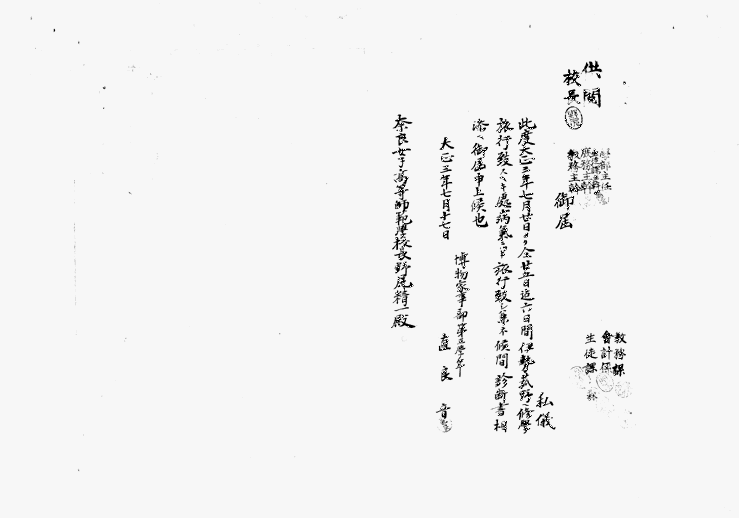 供閲
校長
教務主幹
庶務主幹
御届
教務課
會計係
生徒課
私儀
此度大正三年七月廿日ヨリ仝廿五日迠六日間伊勢菰野ヘ修學
旅行致スベキ處病氣ニツキ旅行致シ兼候間診断書相
添ヘ御届申上候也
大正三年七月十七日
博物家事部第三學年
奈良女子高等師範學校長野尻精一殿